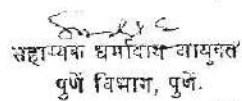 सहाय्यक धर्मादाय आयुक्त
पुणे विभाग, पुणे.